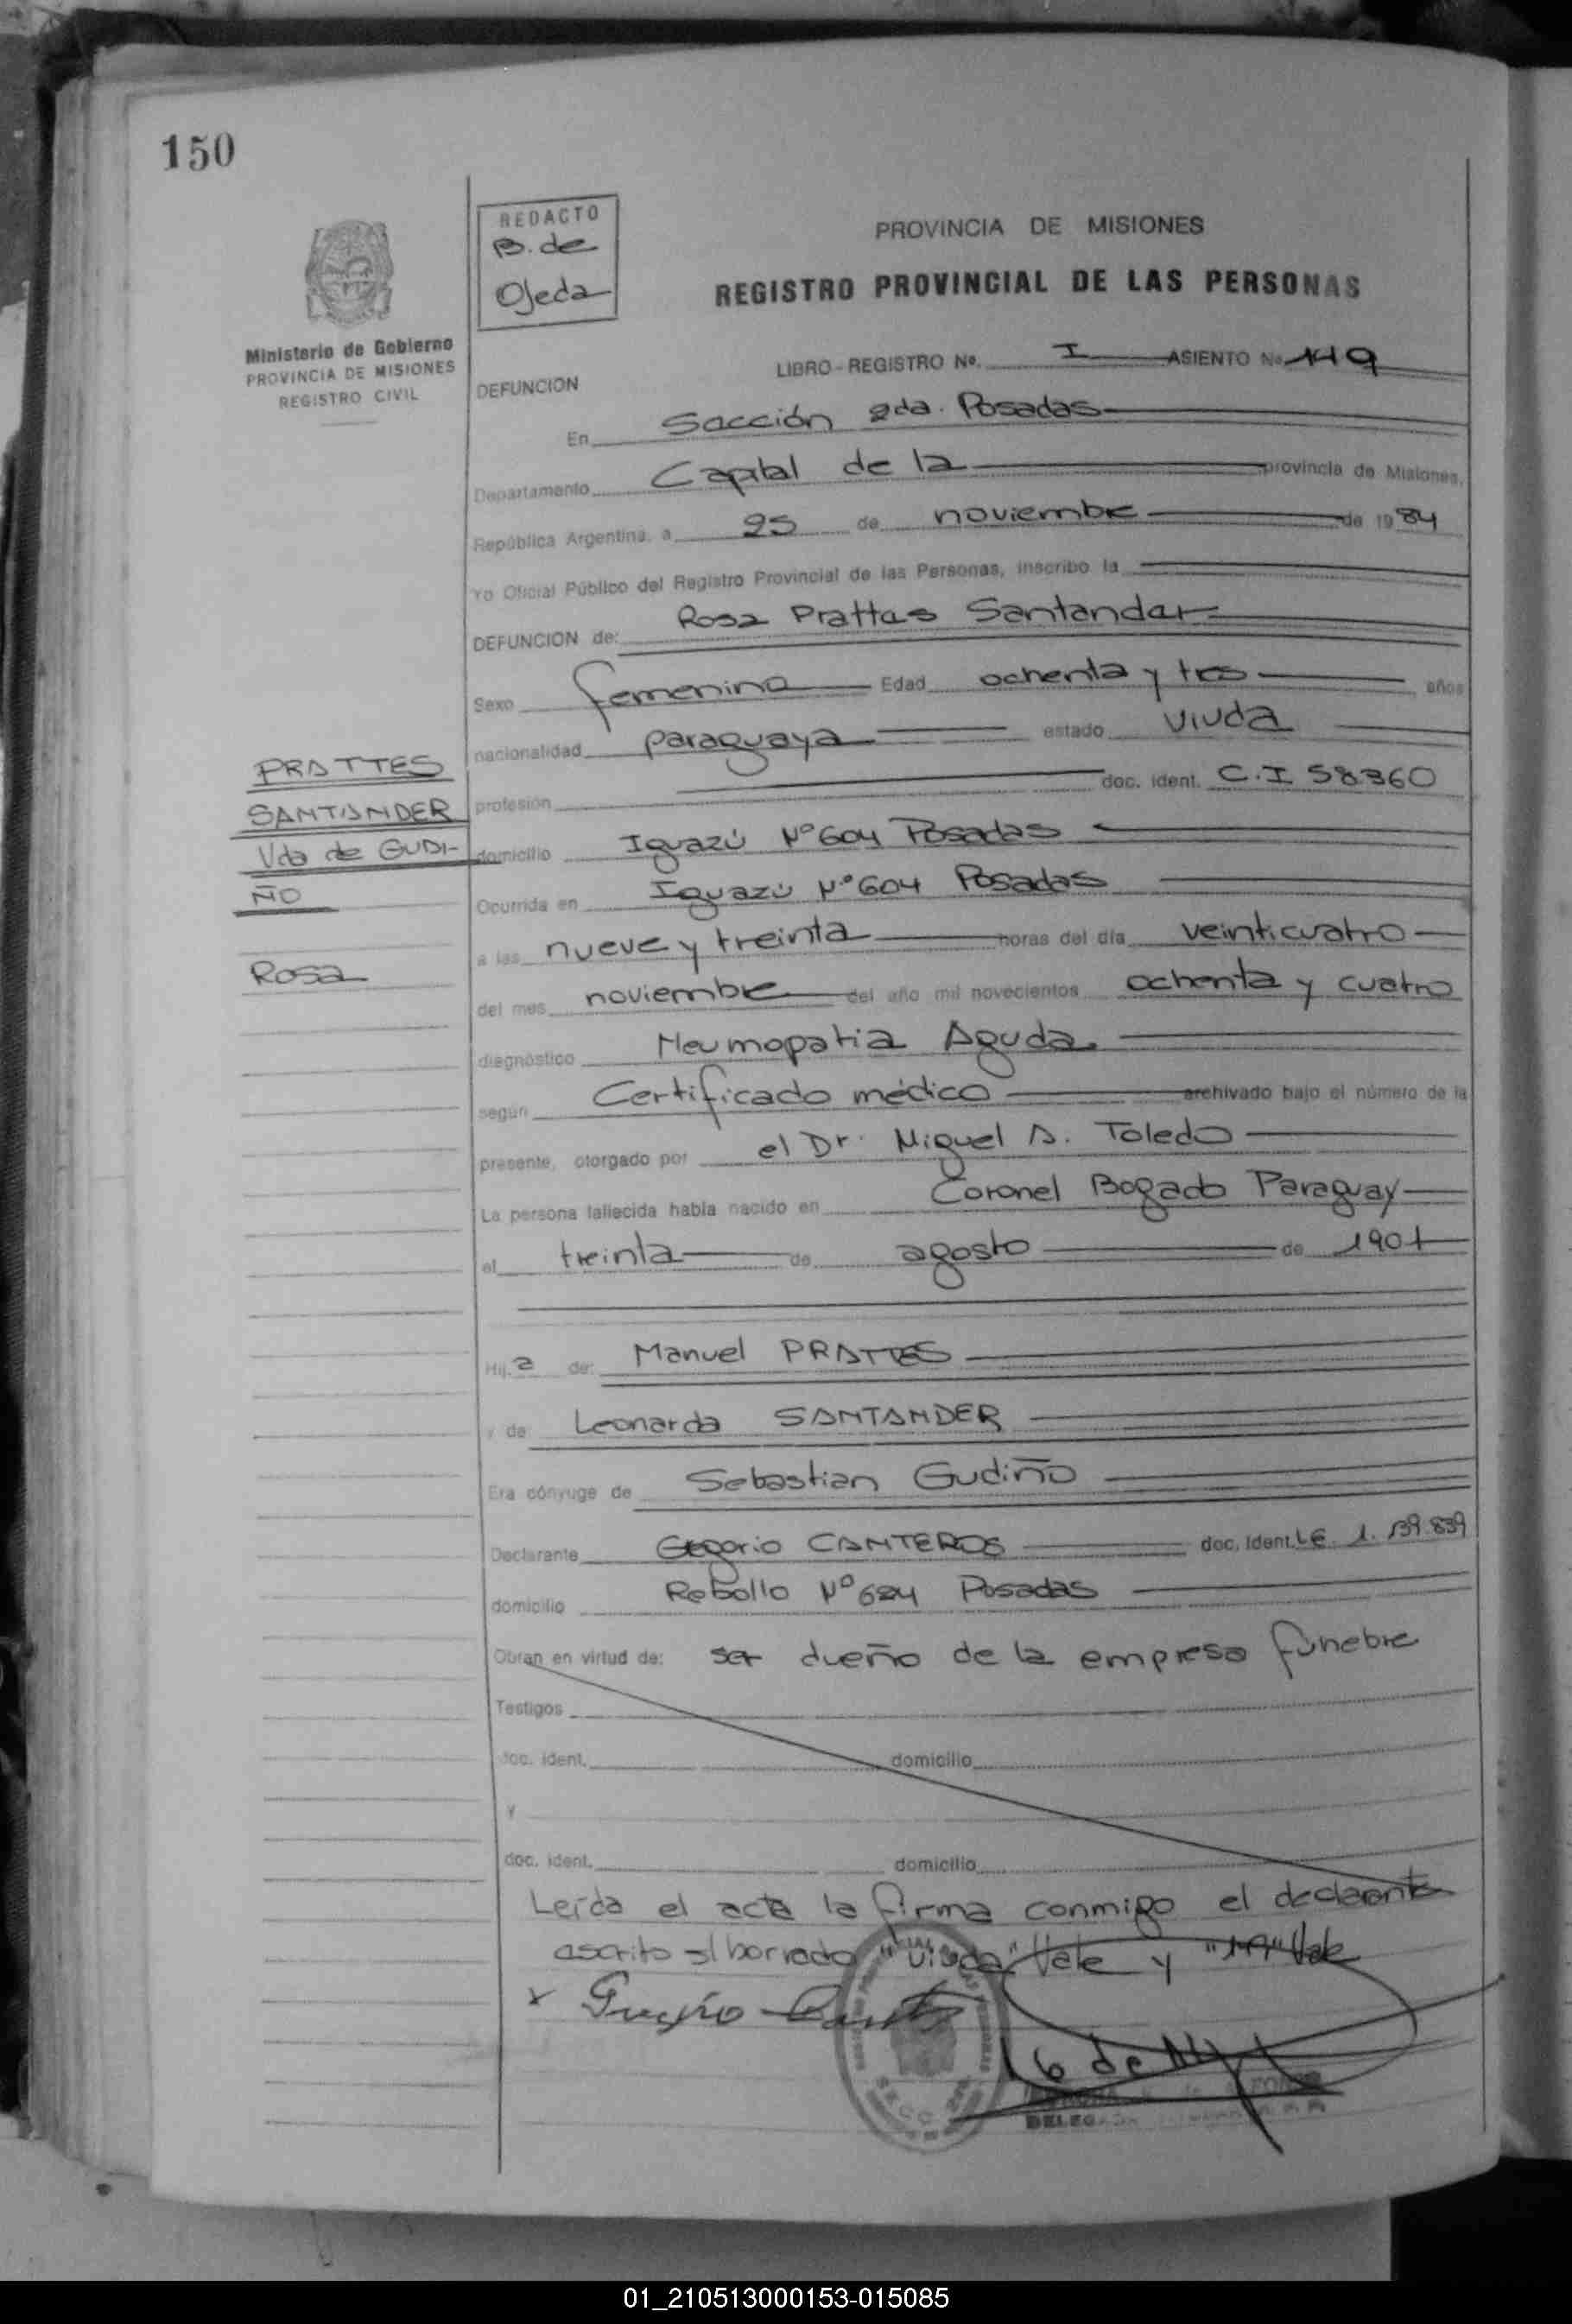 150
REDACTO
B. de
Ojeda
PROVINCIA DE MISIONES
REGISTRO PROVINCIAL DE LAS PERSONAS
Ministerio de Gobierno
PROVINCIA DE MISIONES
REGISTRO CIVIL
LIBRO - REGISTRO No. I ASIENTO No 149
DEFUNCION
En Sacción 2da. Posadas
Departamento Capital de la provincia de Misiones,
República Argentina, a 25 de noviembre de 1984
Yo Oficial Público del Registro Provincial de las Personas, inscribo la
DEFUNCION de: Rosa Prattes Santander
Sexo femenino Edad ochenta y tres años
nacionalidad paraguaya estado viuda
PRATTES
SANTANDER
Vda de GUDI-
ÑO
Rosa
profesión doc. ident. C.I 58.360
domicilio Iguazú Nº 604 Posadas
Ocurrida en Iguazú Nº 604 Posadas
a las nueve y treinta horas del día veinticuatro
del mes noviembre del año mil novecientos ochenta y cuatro
diagnóstico Neumopatia Aguda.
según Certificado médico archivado bajo el número de la
presente, otorgado por el Dr. Miguel A. Toledo
La persona fallecida había nacido en Coronel Bogado Paraguay
el treinta de agosto de 1901
Hij.a de: Manuel PRATTES
y de Leonarda SANTANDER
Era cónyuge de Sebastian Gudiño
Declarante Gregorio CANTEROS doc. ident. LE. 1. 139.839
domicilio Rebollo Nº 624 Posadas
Obran en virtud de: ser dueño de la empresa fúnebre
Testigos
doc. ident. domicilio
y
doc. ident. domicilio
Leída el acta la firma conmigo el declarante
ascrito s/borrado "viuda" Vale y Vale
x
SECC. 2da.
DELEGADA
01_210513000153-015085